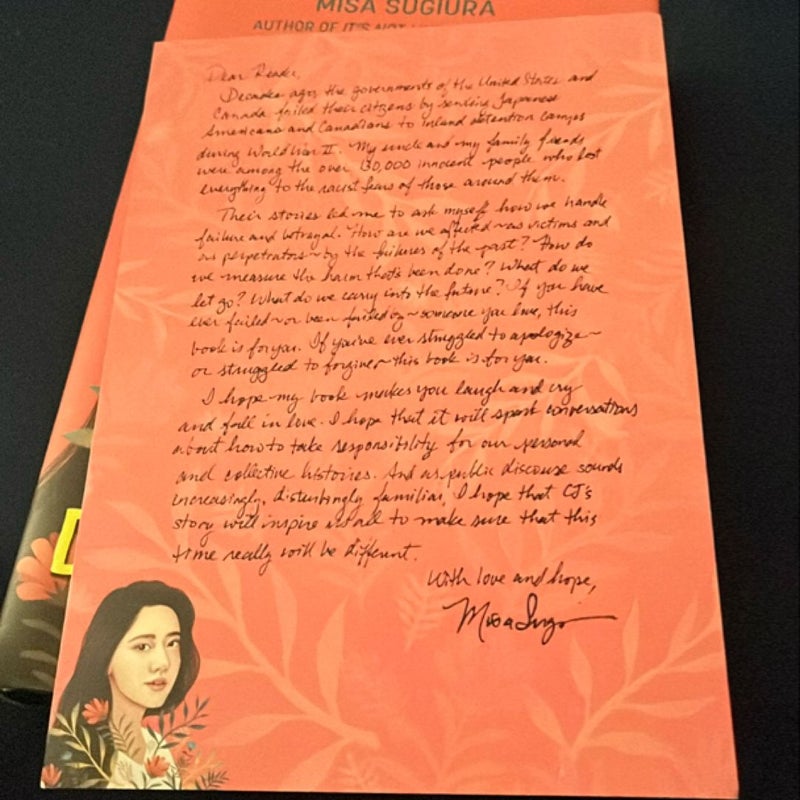 MISA SUGIURA
AUTHOR OF IT'S NOT
Dear Reader,
Decades ago, the governments of the United States and
Canada failed their citizens by sending Japanese
Americans and Canadians to inland detention camps
during World War II. My uncle and my family friends
were among the over 130,000 innocent people who lost
everything to the racist fears of those around them.
Their stories led me to ask myself how we handle
failure and betrayal. How are we affected~as victims and
as perpetrators~by the failures of the past? How do
we measure the harm that's been done? What do we
let go? What do we carry into the future? If you have
ever failed~or been failed by~someone you love, this
book is for you. If you've ever struggled to apologize~
or struggled to forgive~this book is for you.
I hope my book makes you laugh and cry
and fall in love. I hope that it will spark conversations
about how to take responsibility for our personal
and collective histories. And as public discouse sounds
increasingly, disturbingly familiar, I hope that CJ's
story will inspire us all to make sure that this
time really will be different.
With love and hope,
Misa Sugi